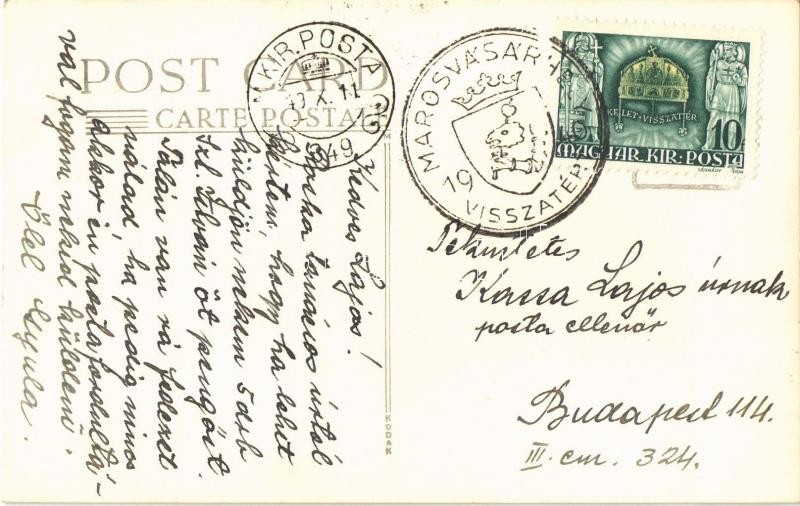 POST CARD
CARTE POSTALE
M.KIR.POSTA
X. 11
849
MAROSVÁSÁRHELY
19
VISSZATÉRT
KELET-VISSZATÉR
10f
MAGYAR.KIR.POSTA
LÉGRÁDY
Kedves Lajos!
tanácsos úrtól
kértem, hogy ha lehet
küldjön nekem 5 drb
Szt. István öt pengőst.
Talán van rá fedezet
nálad, ha pedig nincs
akkor én postafordultá-
val fogom neked küldeni.
Ölel Gyula.
Tekintetes
Kassa Lajos úrnak
posta ellenőr
Budapest 114.
III. em. 324.
KODAK